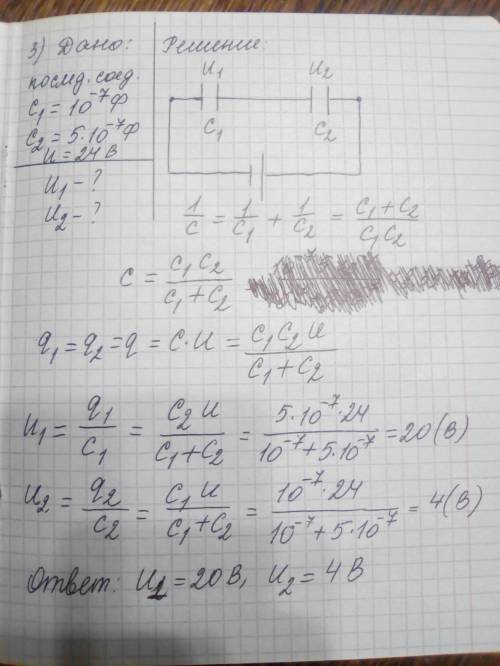 3) Дано: Решение:
послд. соед.
C₁ = 10⁻⁷ Ф
C₂ = 5·10⁻⁷ Ф
U = 24 В
U₁ - ?
U₂ - ?
U₁ U₂
C₁ C₂
1/C = 1/C₁ + 1/C₂ = (C₁+C₂)/(C₁C₂)
C = (C₁C₂)/(C₁+C₂)
q₁ = q₂ = q = C·U = (C₁C₂U)/(C₁+C₂)
U₁ = q₁/C₁ = (C₂U)/(C₁+C₂) = (5·10⁻⁷·24)/(10⁻⁷+5·10⁻⁷) = 20 (В)
U₂ = q₂/C₂ = (C₁U)/(C₁+C₂) = (10⁻⁷·24)/(10⁻⁷+5·10⁻⁷) = 4 (В)
Ответ: U₁ = 20 В, U₂ = 4 В